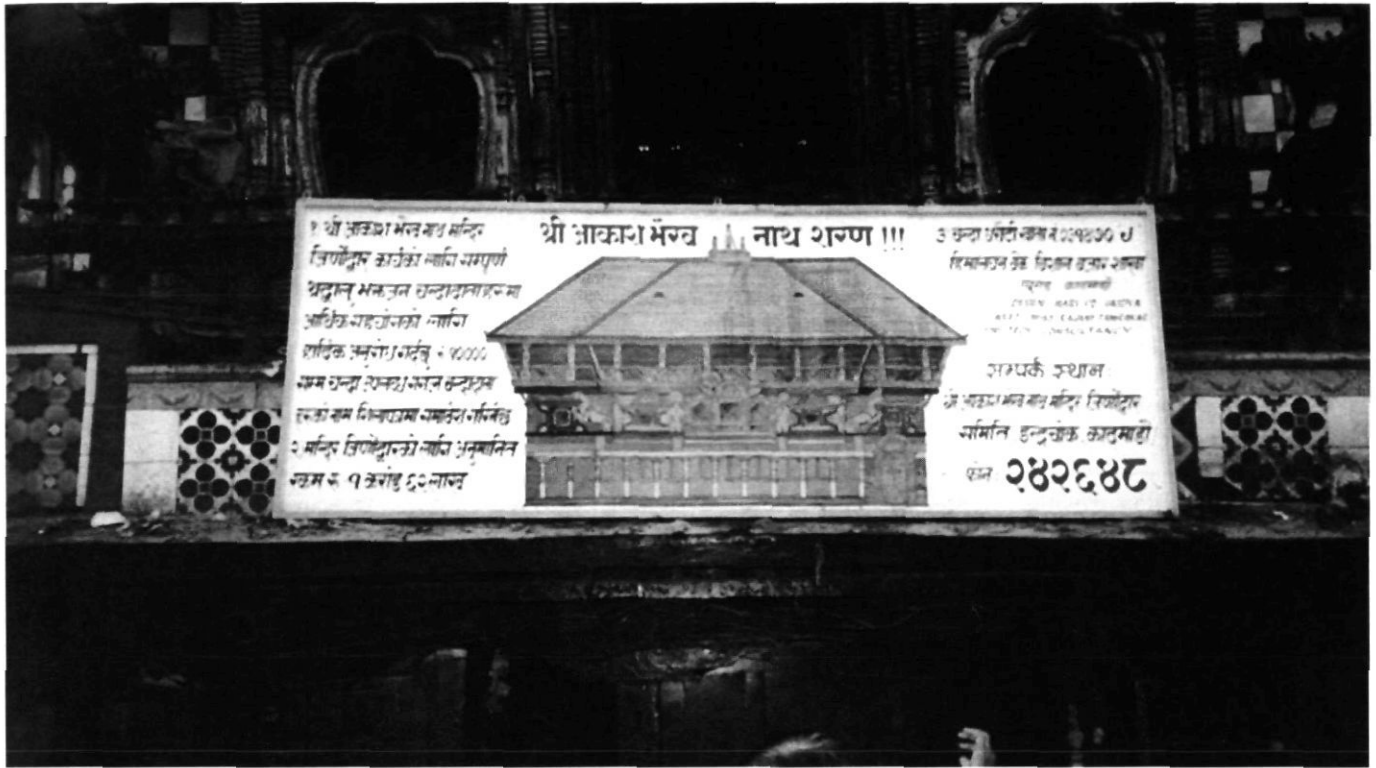 श्री आकाश भैरव नाथ शरण !!!
१ श्री आकाश भैरव नाथ मन्दिर
जिर्णोद्वार कार्यको लागि सम्पूर्ण
श्रद्वालु भक्तजन चन्दादाताहरूमा
आर्थिक सहयोगको लागि
हार्दिक अनुरोध गर्दछु रु १००००
सम्म चन्दा
हरुको नाम शिलापत्रमा समावेश गरिनेछ
२ मन्दिर जिर्णोद्वारको लागि अनुमानित
रकम रु १ करोड ६२ लाख
३ चन्दा
हिमालयन बैंक विशाल बजार शाखा
सम्पर्क स्थान
श्री आकाश भैरव नाथ मन्दिर जिर्णोद्वार
समिति इन्द्रचोक काठमाडौं
फोन २४२६४८